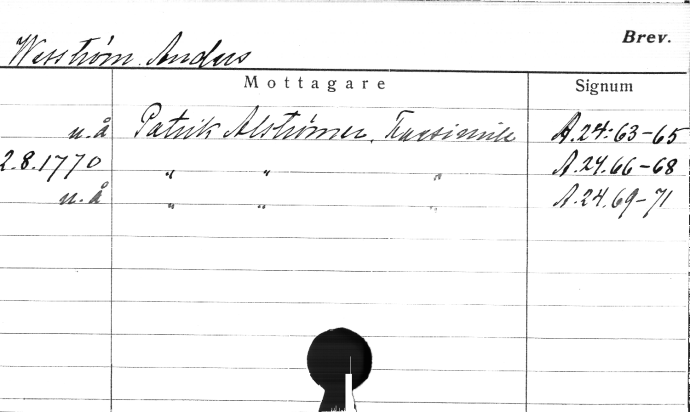 Brev.
Wesström, Anders
Mottagare Signum
u.å Patrik Alströmer, Faksimile A.24.63-65
2.8.1770 " " " A.24.66-68
u.å " " " A.24.69-71